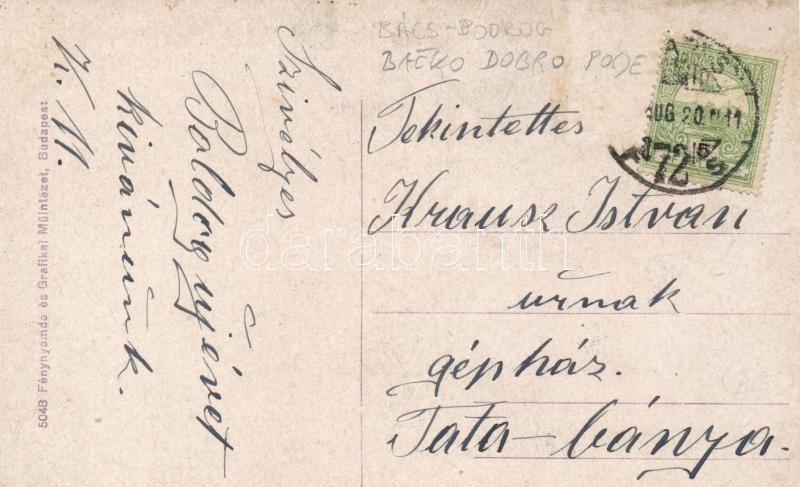 BÁCS-BODROG
BAČKO DOBRO POLJE
Szivélyes
Boldog ujévet
kivánunk.
K. M.
Tekintettes
Krausz Istvan
úrnak
gépház.
Tata-bánya.
AUG 20
72
5048 Fénynyomda és Grafikai Műintézet, Budapest
darabanth